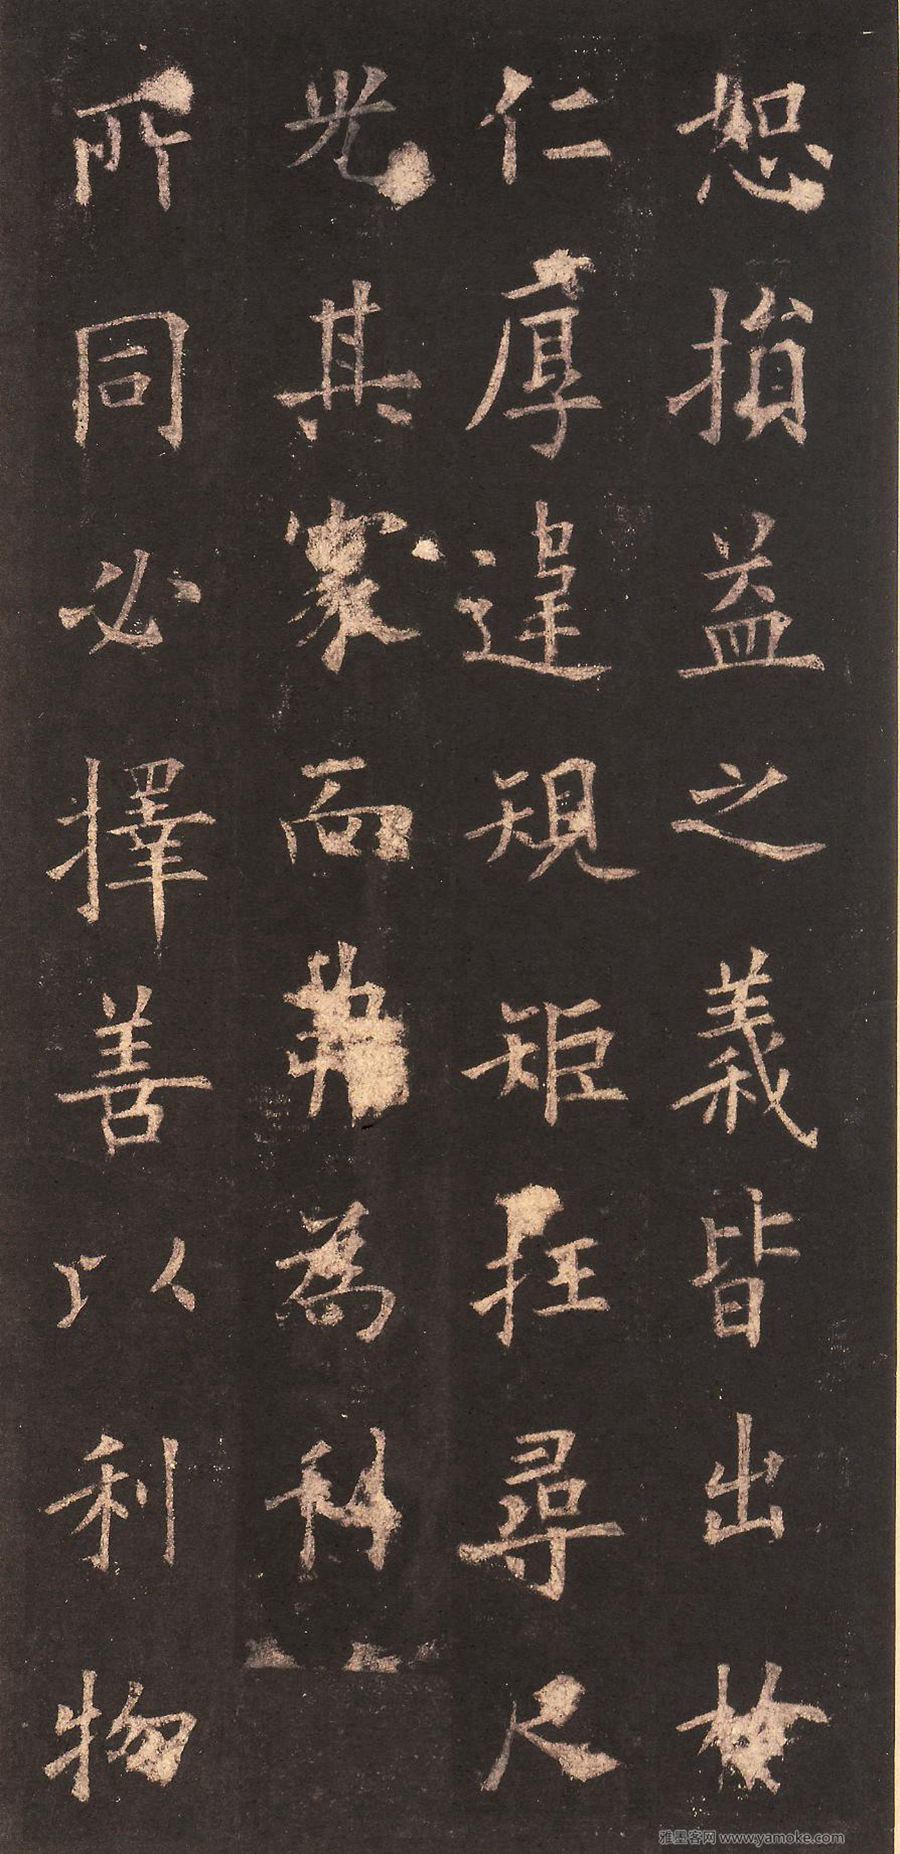 恕損益之義皆出於
仁厚違規矩抂尋尺
光其裘而為科
所同必擇善以利物
雅墨客网 www.yamoke.com